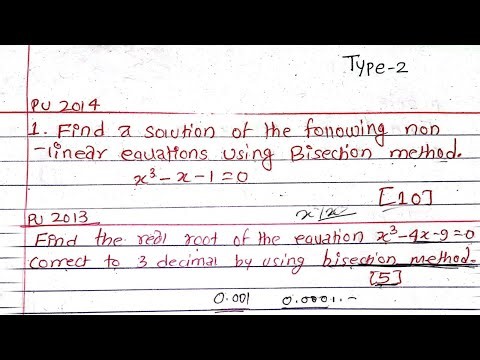 Type-2
PU 2014
1. Find a solution of the following non
-linear equations using Bisection method.
x³-x-1=0
[10]
PU 2013
Find the real root of the equation x³-4x-9=0
correct to 3 decimal by using bisection method.
[5]
0.001 0.0001..